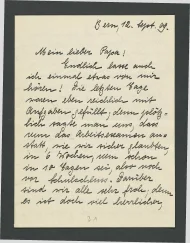 Bern, 12. Sept. 09.
Mein lieber Papa!
Endlich lasse auch
ich einmal etwas von mir
hören! Die letzten Tage
waren eben reichlich mit
Aufgaben gefüllt, denn plötz-
lich sagte man uns, dass
nun das Arbeitsexamen an-
statt, wie wir sicher glaubten,
in 6 Wochen, nun schon
in 10 Tagen sei, also noch
vor Schulschluss. Darüber
sind wir alle sehr froh, denn
es ist doch viel herrlicher,